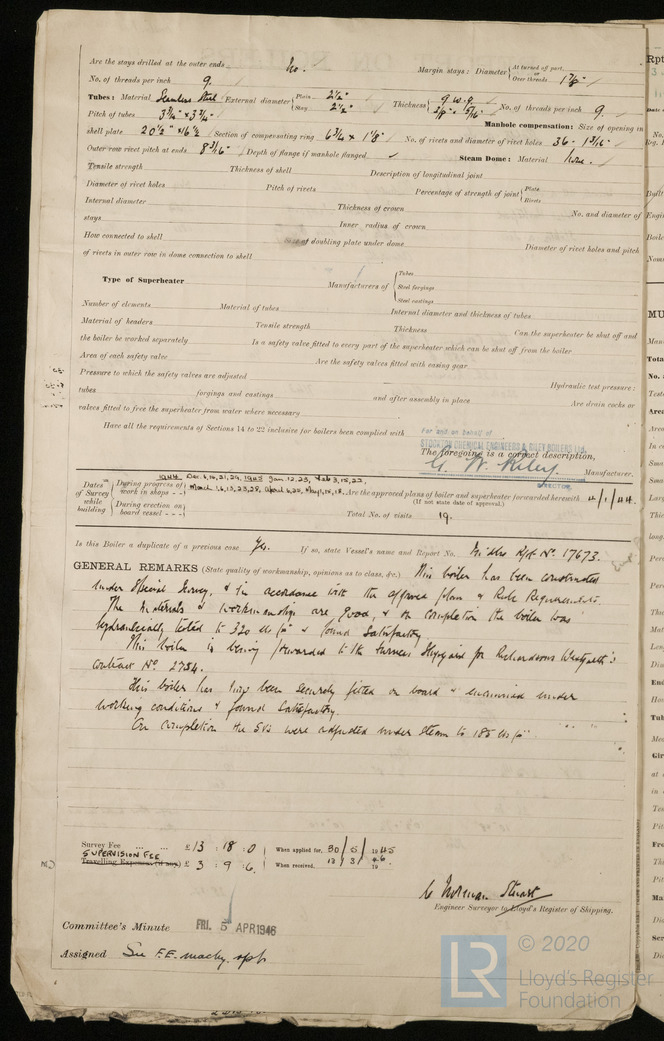 Are the stays drilled at the outer ends No. Margin stays: Diameter { At turned off part, or Over threads 1 7/8"
No. of threads per inch 9
Tubes: Material Seamless Steel External diameter { Plain 2½" Stay 2½" Thickness { 9 W.G. 3/8" & 5/16" No. of threads per inch 9.
Pitch of tubes 3¾" x 3¾" Manhole compensation: Size of opening in
shell plate 20½" x 16½ Section of compensating ring 6¾ x 1⅛" No. of rivets and diameter of rivet holes 36 - 1 3/16"
Outer row rivet pitch at ends 8 3/16" Depth of flange if manhole flanged Steam Dome: Material None.
Tensile strength Thickness of shell Description of longitudinal joint
Diameter of rivet holes Pitch of rivets Percentage of strength of joint { Plate Rivets
Internal diameter Thickness of crown No. and diameter of
stays Inner radius of crown
How connected to shell Size of doubling plate under dome Diameter of rivet holes and pitch
of rivets in outer row in dome connection to shell
Type of Superheater Manufacturers of { Tubes Steel forgings Steel castings
Number of elements Material of tubes Internal diameter and thickness of tubes
Material of headers Tensile strength Thickness Can the superheater be shut off and
the boiler be worked separately Is a safety valve fitted to every part of the superheater which can be shut off from the boiler
Area of each safety valve Are the safety valves fitted with easing gear
Pressure to which the safety valves are adjusted Hydraulic test pressure:
tubes forgings and castings and after assembly in place Are drain cocks or
valves fitted to free the superheater from water where necessary
Have all the requirements of Sections 14 to 22 inclusive for boilers been complied with
For and on behalf of
STOCKTON CHEMICAL ENGINEERS & RILEY BOILERS Ltd.
The foregoing is a correct description,
G. W. Riley. Manufacturer.
DIRECTOR
Dates of Survey while building { During progress of work in shops - - 1944 Dec. 6, 14, 21, 29, 1945 Jan. 12, 23, Feb 3, 15, 22, March 1, 6, 13, 23, 28, April 6, 20, May 1, 15, 18. Are the approved plans of boiler and superheater forwarded herewith 4/1/44.
(If not state date of approval.)
During erection on board vessel - - - Total No. of visits 19.
Is this Boiler a duplicate of a previous case Yes. If so, state Vessel's name and Report No. Middlesbro Rpt. No. 17673.
GENERAL REMARKS (State quality of workmanship, opinions as to class, &c.) This boiler has been constructed
under Special Survey, & in accordance with the approved plan & Rule Requirements.
The materials & workmanship are good, & on completion the boiler was
hydraulically tested to 320 lbs/□" & found satisfactory.
This boiler is being forwarded to the Furness Shipyard for Richardsons Westgarth's
contract No. 2754.
This boiler has now been securely fitted on board & examined under
working conditions & found satisfactory.
On completion the SVs were adjusted under steam to 185 lbs/□"
Survey Fee ... ... £13 : 18 : 0 When applied for, 30/5/1945
SUPERVISION FEE
Travelling Expenses (if any) £ 3 : 9 : 6. When received, 13/3/1946.
C. Norman Stuart
Engineer Surveyor to Lloyd's Register of Shipping.
Committee's Minute FRI. 5 APR 1946
Assigned See F.E. machy. rpt.
© 2020
LR Lloyd's Register
Foundation
Rpt
MU